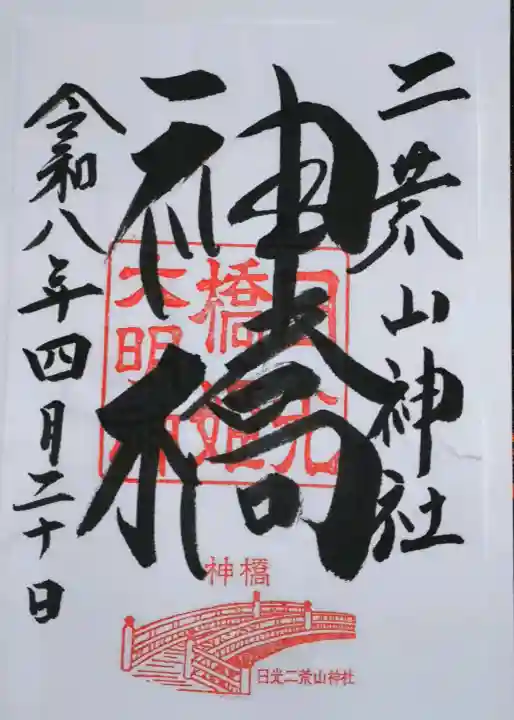 二荒山神社
神橋
日光
橋姫
大明神
令和八年四月二十日
神橋
日光二荒山神社